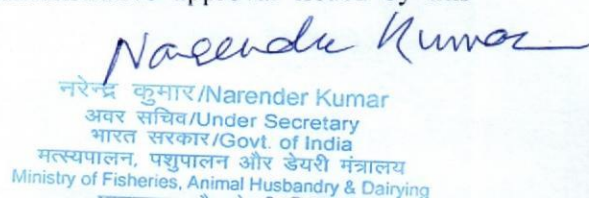 approval issued by this
Narendra Kumar
नरेन्द्र कुमार/Narender Kumar
अवर सचिव/Under Secretary
भारत सरकार/Govt. of India
मत्स्यपालन, पशुपालन और डेयरी मंत्रालय
Ministry of Fisheries, Animal Husbandry & Dairying